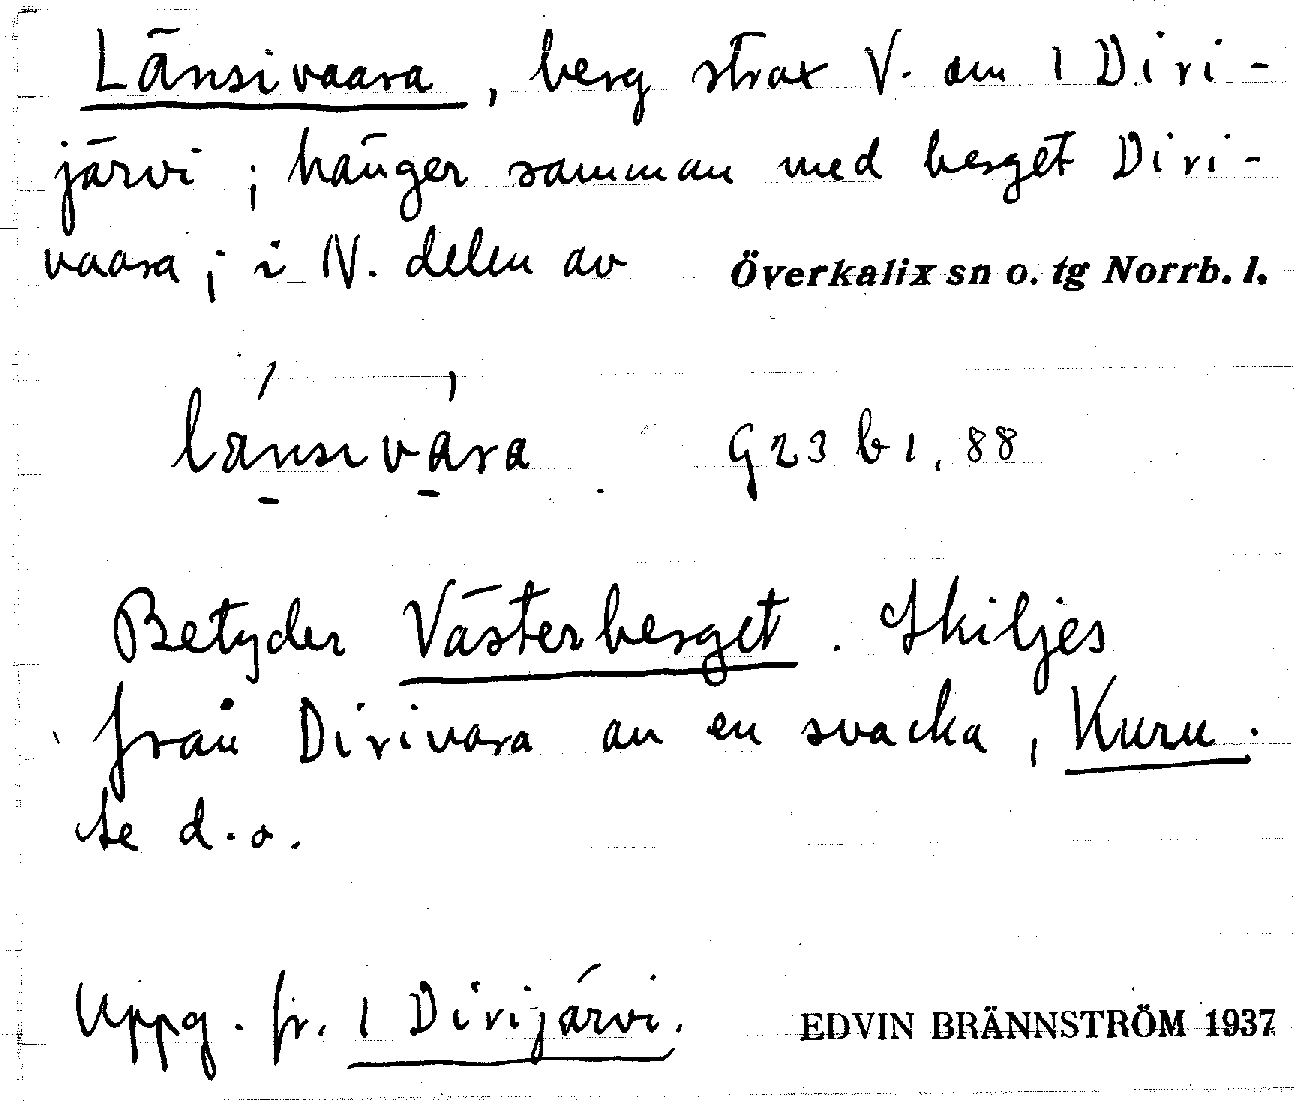 Länsivaara, berg strax V. om 1 Diri-
järvi; hänger samman med berget Diri-
vaara; i N. delen av Överkalix sn o. tg Norrb. l.
länsivara G23 b1, 88
Betyder Västerberget. Skiljes
från Dirivara av en svacka, Kuru.
Se d.o.
Uppg. fr. 1 Dirijärvi. EDVIN BRÄNNSTRÖM 1937